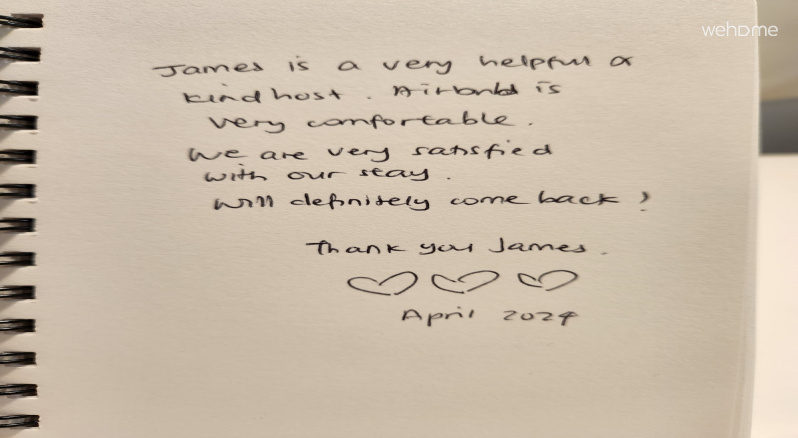 wehome
James is a very helpful &
kind host. Airbnb is
very comfortable.
We are very satisfied
with our stay.
Will definitely come back!
Thank you James.
April 2024